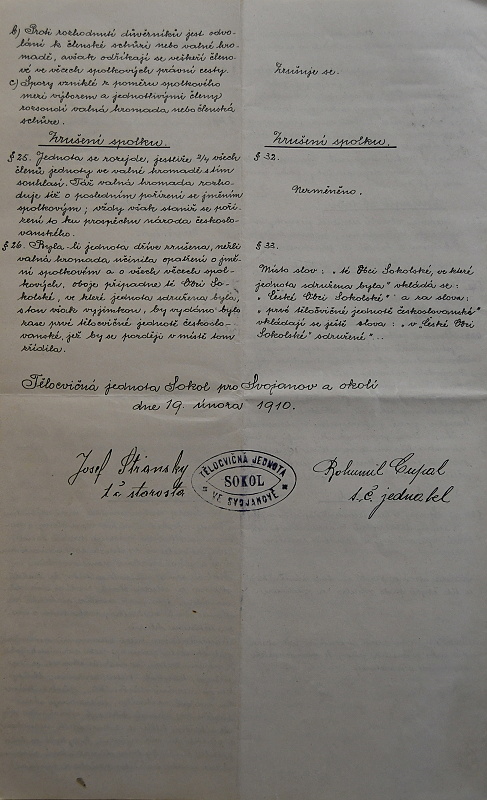 b) Proti rozhodnutí důvěrníků jest odvo-
lání k členské schůzi nebo valné hro-
madě, avšak odříkají se veškeří členo-
vé ve věcech spolkových právní cesty.
c) Spory vzniklé z poměru spolkového
mezi výborem a jednotlivými členy
rozsoudí valná hromada nebo členská
schůze.
Zrušení spolku.
§ 25. Jednota se rozejde, jestliže 3/4 všech
členů jednoty ve valné hromadě s tím
souhlasí. Táž valná hromada rozho-
duje též o posledním pořízení se jměním
spolkovým; vždy však staniž se poří-
zení to ku prospěchu národa českoslo-
vanského.
§ 26. Byla-li jednota dříve zrušena, nežli
valná hromada učinila opatření o jmě-
ní spolkovém a o všech věcech spol-
kových, obojí připadne té Obci So-
kolské, ve které jednota sdružena byla,
s tou však vyjímkou, by vydáno bylo
zase prvé tělocvičné jednotě českoslo-
vanské, jež by se později v místě tom
zřídila.
Zrušuje se.
Zrušení spolku.
§ 32.
Nezměněno.
§ 33.
Místo slov: „té Obci Sokolské, ve které
jednota sdružena byla" vkládá se:
„České Obci Sokolské" a za slova:
„prvé tělocvičné jednotě českoslovanské"
vkládají se ještě slova: „v České Obci
Sokolské sdružené"..
Tělocvičná jednota Sokol pro Svojanov a okolí
dne 19. února 1910.
Josef Stránský
t. č. starosta
TĚLOCVIČNÁ JEDNOTA
SOKOL
VE SVOJANOVĚ
Bohumil Cupal
t. č. jednatel